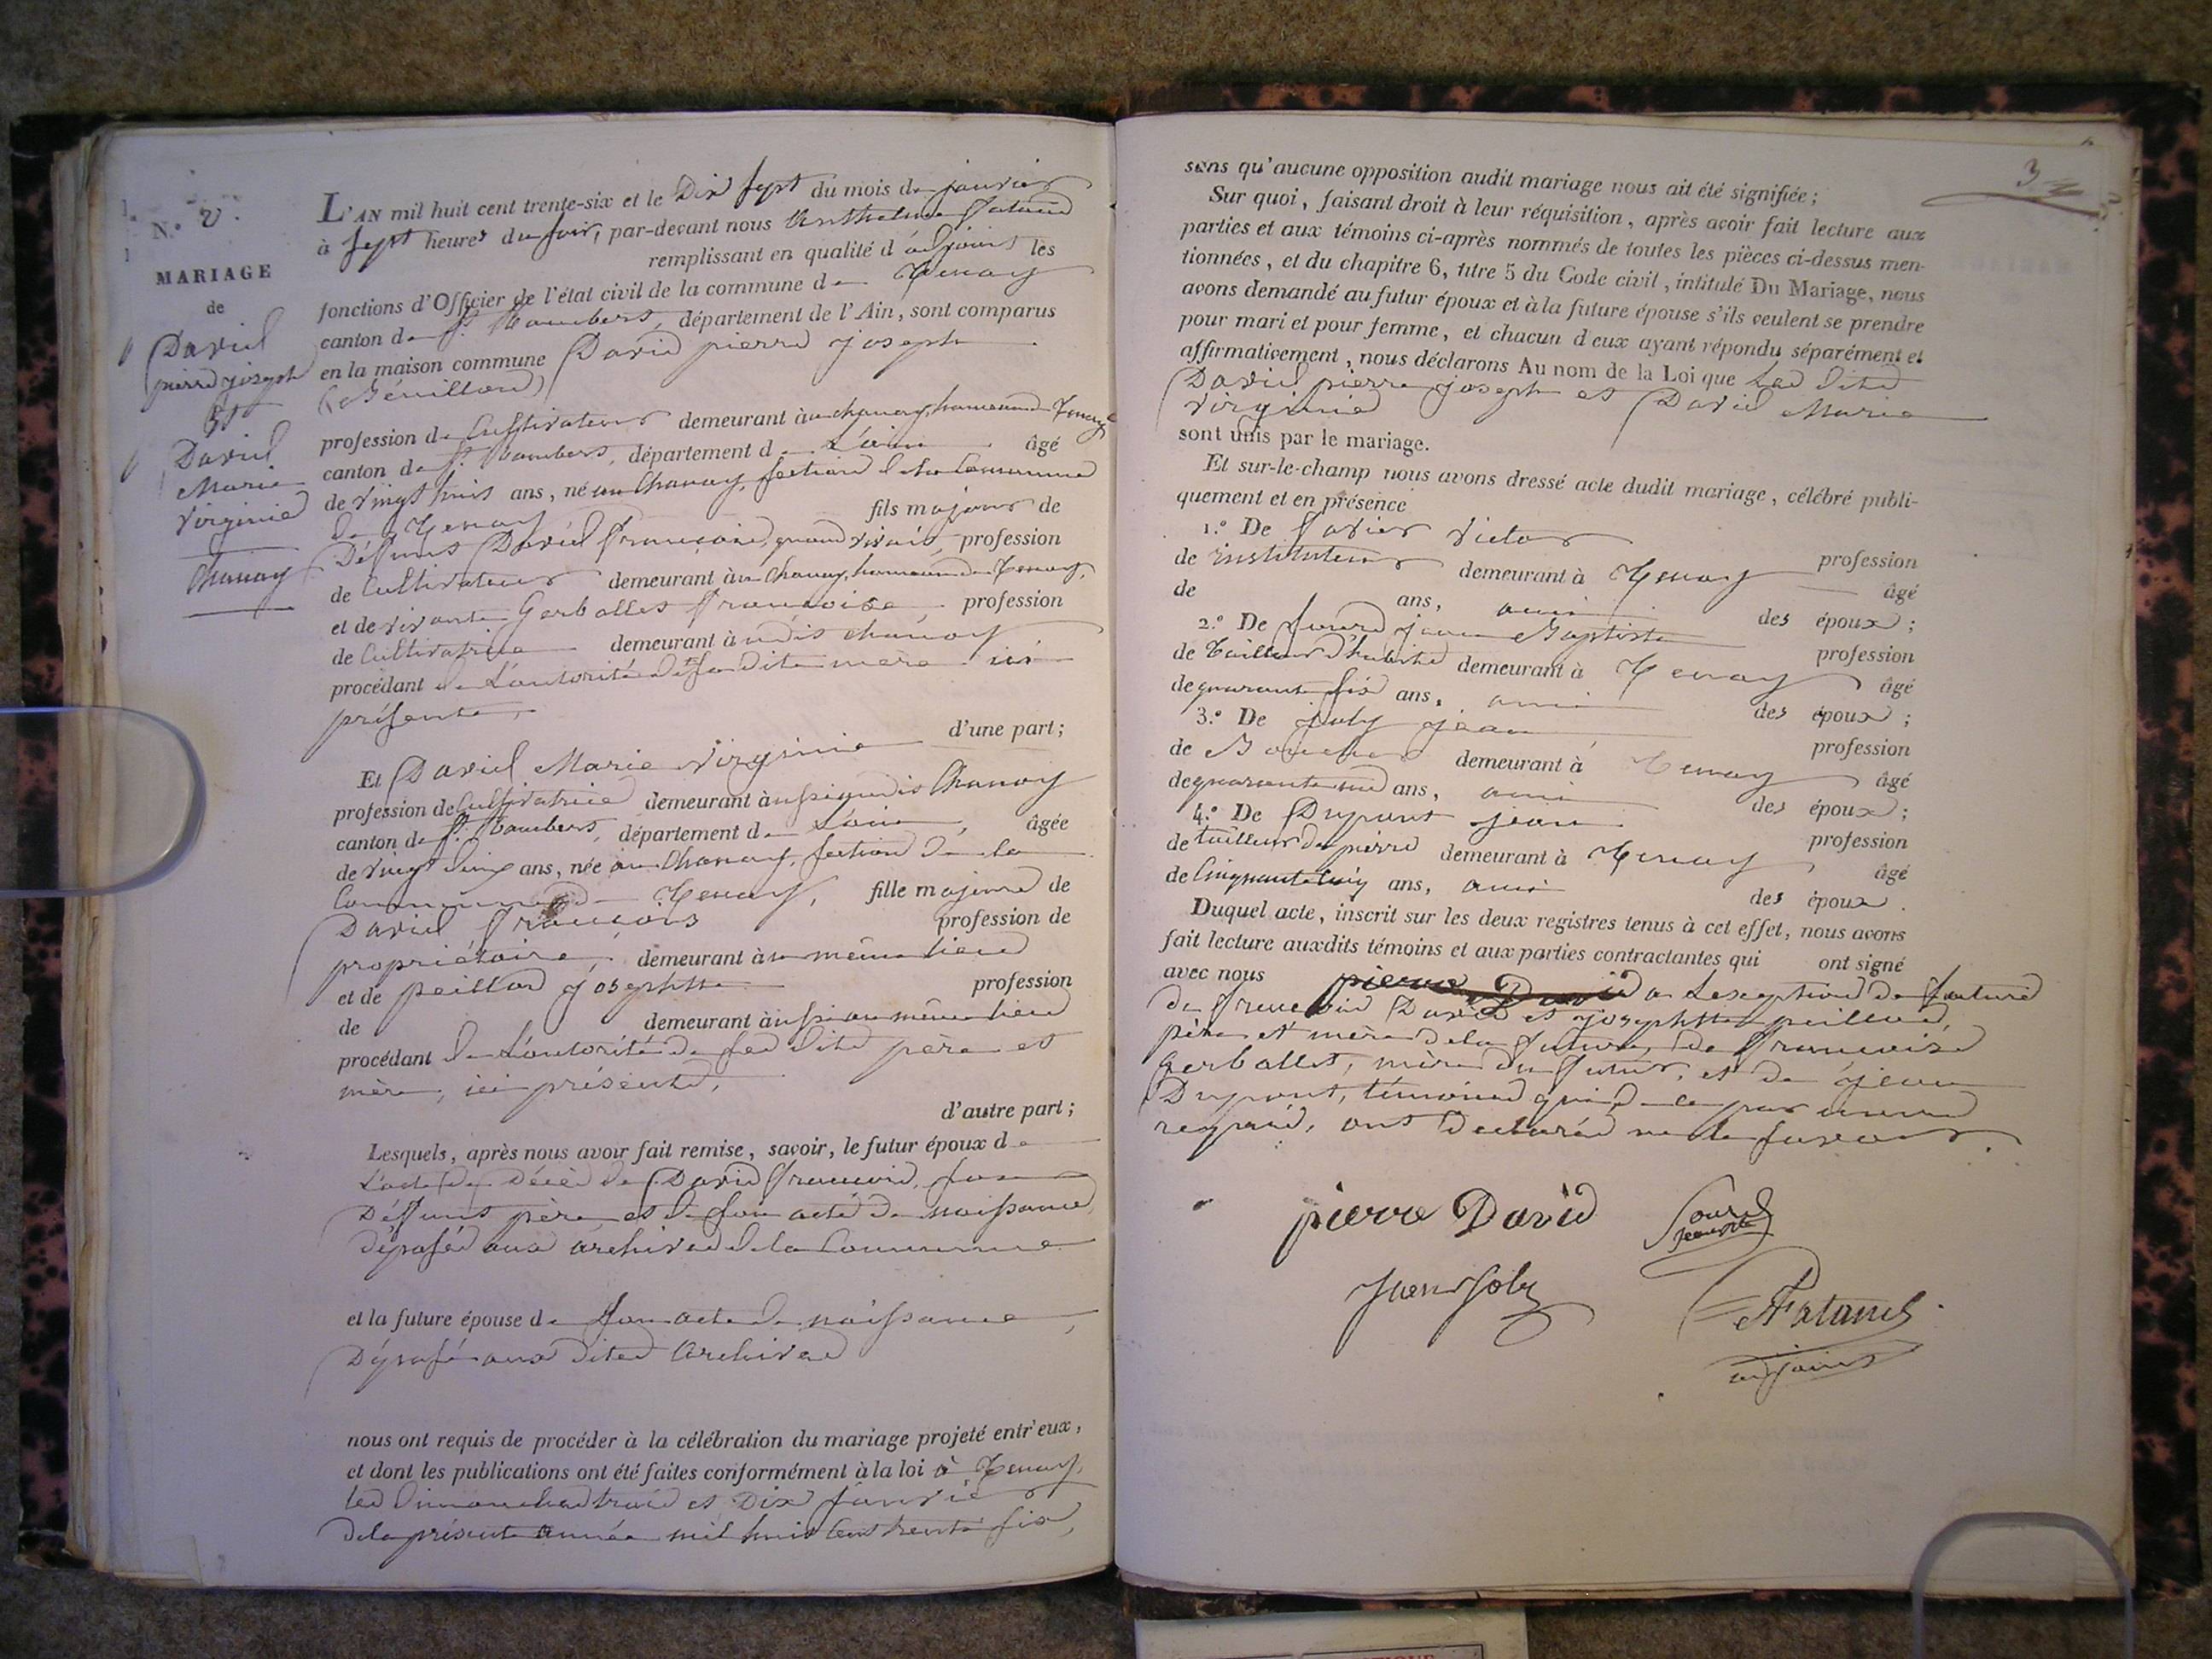 N.° 2.
MARIAGE
de
David
pierre joseph
Et
David
Marie
Virginie
Chanay
L'AN mil huit cent trente-six et le Dix sept du mois de janvier
à sept heures du soir, par-devant nous Anthelme
remplissant en qualité d'adjoint les
fonctions d'Officier de l'état civil de la commune de Tenay
canton de St. Rambert, département de l'Ain, sont comparus
en la maison commune David pierre joseph
profession de Cultivateur demeurant à au chanay, hameau de Tenay
canton de St. Rambert, département de L'ain âgé
de vingt huit ans, né au Chanay, section de la Commune
de Tenay fils majeur de
Défunt David François, quand vivait, profession
de Cultivateur demeurant à au Chanay, hameau de Tenay,
et de vivante Gerbollet françoise, profession
de Cultivatrice demeurant à udit chanay
procédant de L'autorité de sa dite mère ici
présente,
d'une part;
Et David Marie Virginie
profession de Cultivatrice demeurant à ussi audit Chanay
canton de St. Rambert, département de L'ain, âgée
de vingt deux ans, née au Chanay, section de la
Commune de Tenay, fille majeure de
David François profession de
propriétaire, demeurant à u même lieu
et de peillod josephte profession
de demeurant à ussi au même lieu
procédant de L'autorité de ses dits père et
mère, ici présents,
d'autre part;
Lesquels, après nous avoir fait remise, savoir, le futur époux de
L'acte de Décès de David François, son
Défunt père, et de son acte de naissance,
déposés aux archives de la Commune
et la future épouse de son acte de naissance,
Déposé aux dites Archives
nous ont requis de procéder à la célébration du mariage projeté entr'eux,
et dont les publications ont été faites conformément à la loi à Tenay,
les Dimanches trois et Dix janvier
de la présente année mil huit cent trente six,
3
sans qu'aucune opposition audit mariage nous ait été signifiée;
Sur quoi, faisant droit à leur réquisition, après avoir fait lecture aux
parties et aux témoins ci-après nommés de toutes les pièces ci-dessus men-
tionnées, et du chapitre 6, titre 5 du Code civil, intitulé Du Mariage, nous
avons demandé au futur époux et à la future épouse s'ils veulent se prendre
pour mari et pour femme, et chacun d'eux ayant répondu séparément et
affirmativement, nous déclarons Au nom de la Loi que Les dits
David pierre joseph et David Marie
Virginie
sont unis par le mariage.
Et sur-le-champ nous avons dressé acte dudit mariage, célébré publi-
quement et en présence
1.° De Victor
profession
de instituteur demeurant à Tenay âgé
de ans, ami des époux;
2.° De jean Baptiste
profession
de Tailleur d'habits demeurant à Tenay âgé
de quarante six ans, ami des époux;
3.° De joly jean
profession
de demeurant à Tenay âgé
de quarante ans, ami des époux;
4.° De Dupont jean
profession
de tailleur de pierre demeurant à Tenay, âgé
de Cinquante Cinq ans, ami des époux.
Duquel acte, inscrit sur les deux registres tenus à cet effet, nous avons
fait lecture auxdits témoins et aux parties contractantes qui ont signé
avec nous pierre David a L'exeption de
de François David et josephte peillod,
père et mère de la future, de françoise
Gerbollet, mère du futur, et de jean
Dupont, témoins qui, de ce par nous
requis, ont Déclarés ne le savoir.
pierre David
Jean Joly
adjoint